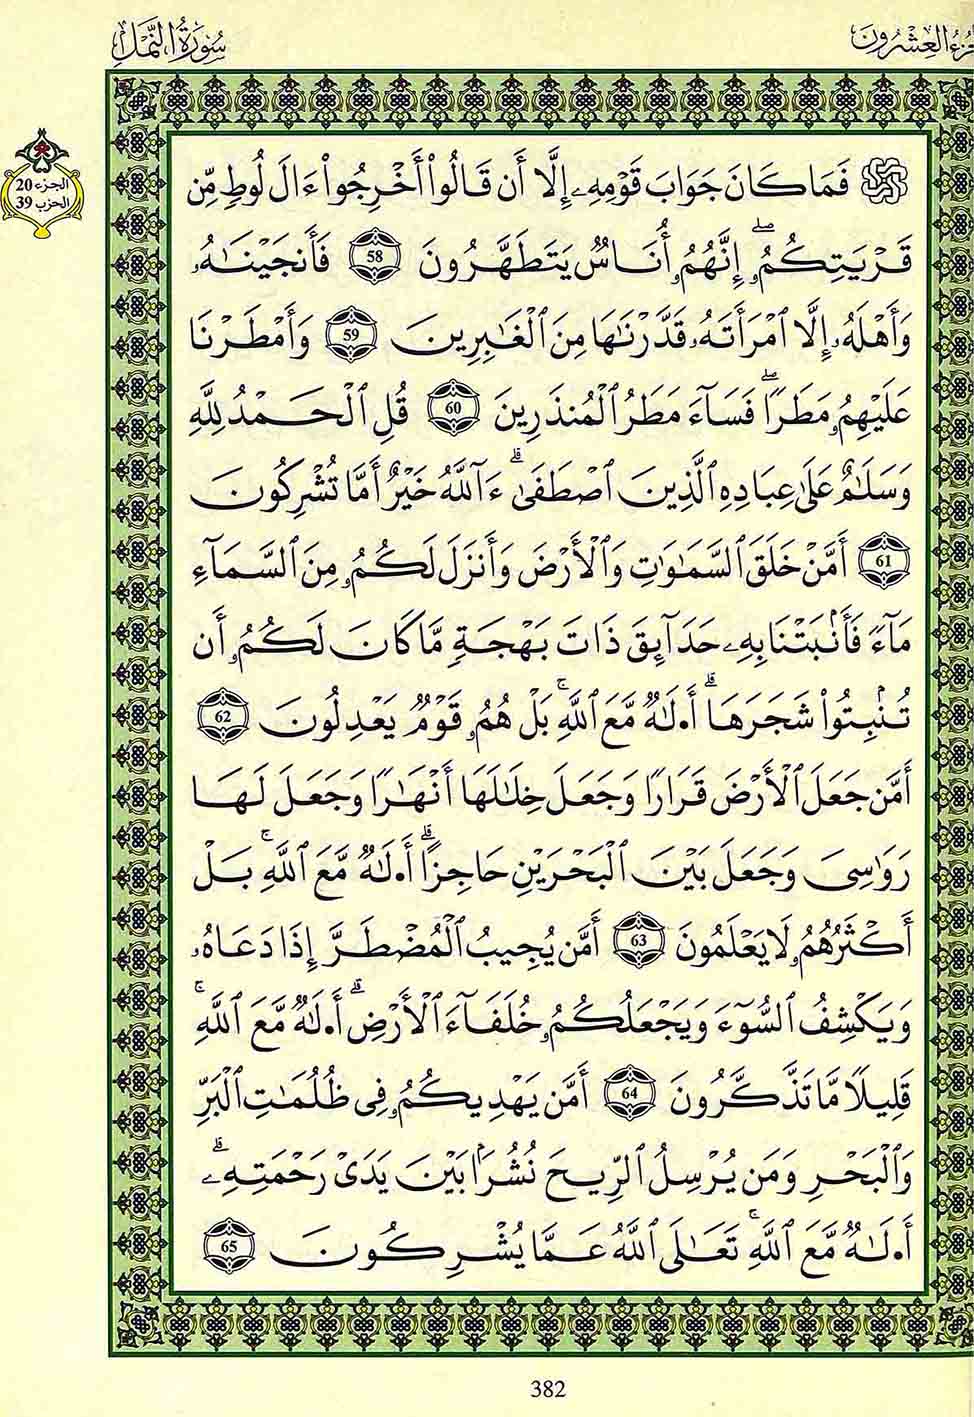 سُورَةُ النَّمْلِ
الجزء العشرون
الجزء 20
الحزب 39
فَمَا كَانَ جَوَابَ قَوْمِهِۦ إِلَّا أَن قَالُوا۟ أَخْرِجُوا۟ ءَالَ لُوطٍ مِّن
قَرْيَتِكُمُۥٓ ۖ إِنَّهُمُۥٓ أُنَاسٌ يَتَطَهَّرُونَ 58 فَأَنجَيْنَٰهُۥ
وَأَهْلَهُۥ إِلَّا ٱمْرَأَتَهُۥ قَدَّرْنَٰهَا مِنَ ٱلْغَٰبِرِينَ 59 وَأَمْطَرْنَا
عَلَيْهِمُۥ مَطَرًا ۖ فَسَآءَ مَطَرُ ٱلْمُنذَرِينَ 60 قُلِ ٱلْحَمْدُ لِلَّهِ
وَسَلَٰمٌ عَلَىٰ عِبَادِهِ ٱلَّذِينَ ٱصْطَفَىٰٓ ۗ ءَآللَّهُ خَيْرٌ أَمَّا تُشْرِكُونَ
61 أَمَّنْ خَلَقَ ٱلسَّمَٰوَٰتِ وَٱلْأَرْضَ وَأَنزَلَ لَكُمُۥ مِنَ ٱلسَّمَآءِ
مَآءً فَأَنۢبَتْنَا بِهِۦ حَدَآئِقَ ذَاتَ بَهْجَةٍ مَّا كَانَ لَكُمُۥٓ أَن
تُنۢبِتُوا۟ شَجَرَهَآ ۗ أَ.لَٰهٌ مَّعَ ٱللَّهِ ۚ بَلْ هُمُۥ قَوْمٌ يَعْدِلُونَ 62
أَمَّن جَعَلَ ٱلْأَرْضَ قَرَارًا وَجَعَلَ خِلَٰلَهَآ أَنْهَٰرًا وَجَعَلَ لَهَا
رَوَٰسِىَ وَجَعَلَ بَيْنَ ٱلْبَحْرَيْنِ حَاجِزًا ۗ أَ.لَٰهٌ مَّعَ ٱللَّهِ ۚ بَلْ
أَكْثَرُهُمُۥ لَا يَعْلَمُونَ 63 أَمَّن يُجِيبُ ٱلْمُضْطَرَّ إِذَا دَعَاهُۥ
وَيَكْشِفُ ٱلسُّوٓءَ وَيَجْعَلُكُمُۥ خُلَفَآءَ ٱلْأَرْضِ ۗ أَ.لَٰهٌ مَّعَ ٱللَّهِ ۚ
قَلِيلًا مَّا تَذَّكَّرُونَ 64 أَمَّن يَهْدِيكُمُۥ فِى ظُلُمَٰتِ ٱلْبَرِّ
وَٱلْبَحْرِ وَمَن يُرْسِلُ ٱلرِّيحَ نُشُرًۢا بَيْنَ يَدَىْ رَحْمَتِهِۦٓ ۗ
أَ.لَٰهٌ مَّعَ ٱللَّهِ ۚ تَعَٰلَى ٱللَّهُ عَمَّا يُشْرِكُونَ 65
382